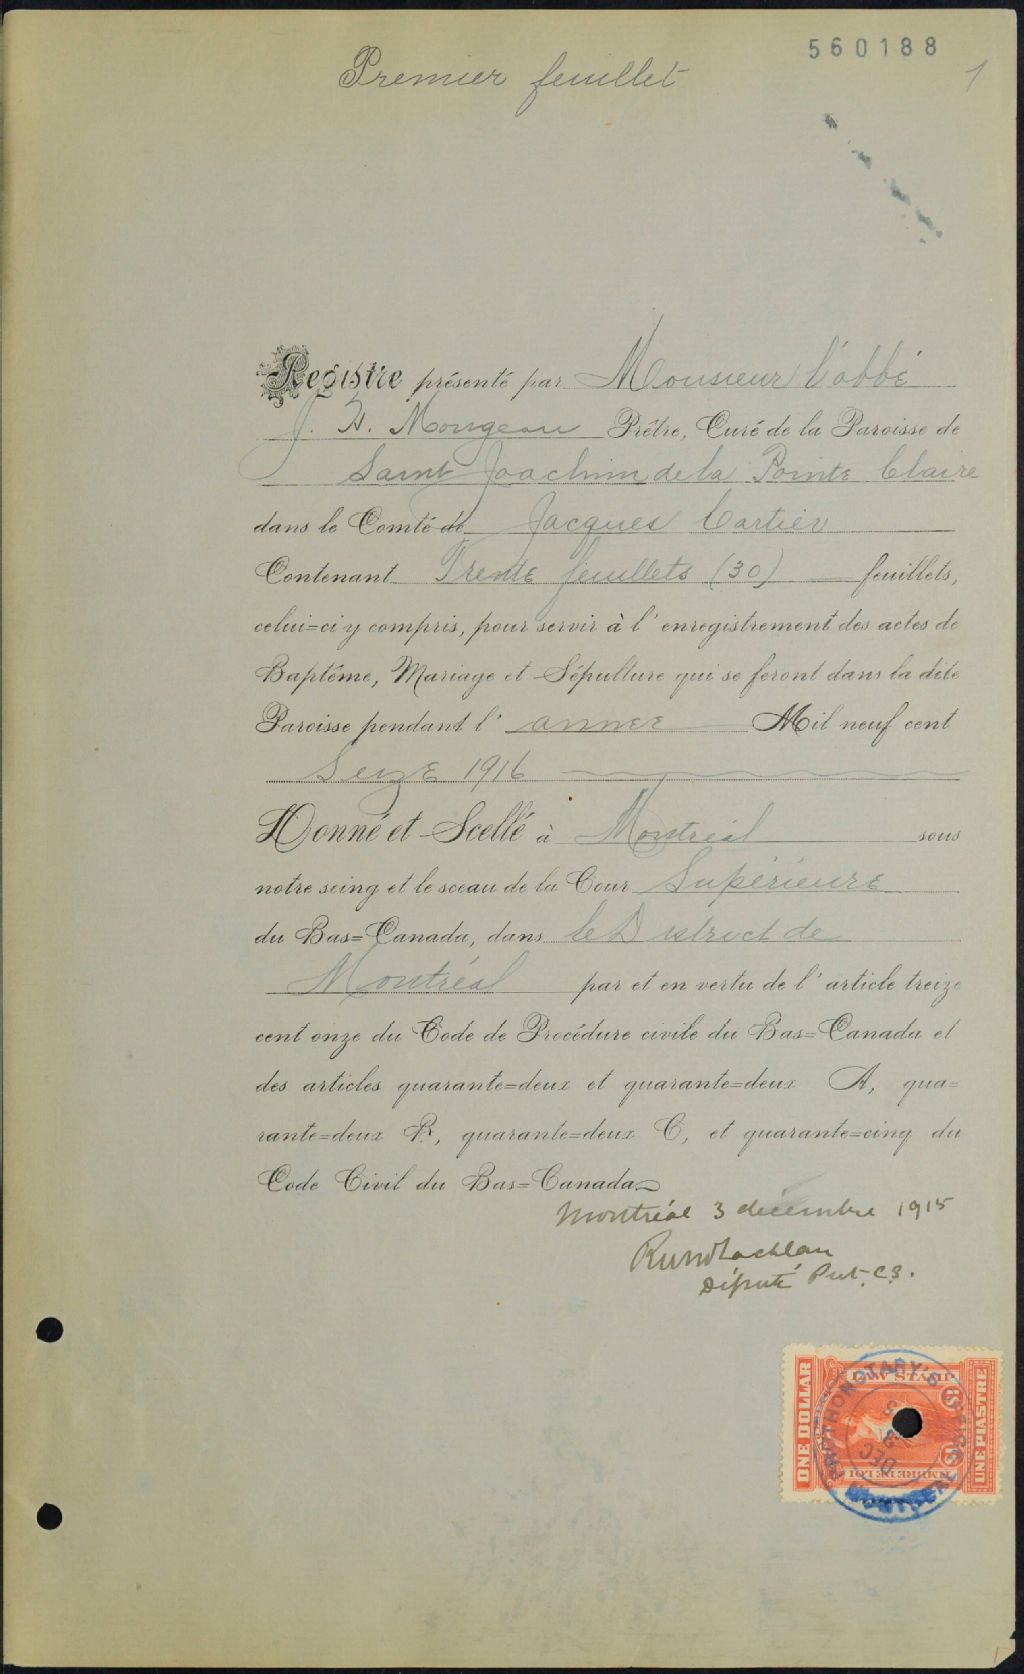 560188
Premier feuillet
1
Registre présenté par Monsieur l'abbé
J. A. Mongeau Prêtre, Curé de la Paroisse de
Saint Joachim de la Pointe Claire
dans le Comté de Jacques Cartier
Contenant Trente feuillets (30) feuillets,
celui=ci y compris, pour servir à l'enregistrement des actes de
Baptême, Mariage et Sépulture qui se feront dans la dite
Paroisse pendant l'année Mil neuf cent
Seize 1916
Donné et Scellé à Montréal sous
notre seing et le sceau de la Cour Supérieure
du Bas=Canada, dans le District de
Montréal par et en vertu de l'article treize
cent onze du Code de Procédure civile du Bas=Canada et
des articles quarante=deux et quarante=deux A, qua=
rante=deux B, quarante=deux C, et quarante=cinq du
Code Civil du Bas=Canada
Montréal 3 décembre 1915
Député Prot. C.S.
ONE DOLLAR
LAW STAMP
UNE PIASTRE
TIMBRE DE LOI
PROTHONOTARY'S OFFICE
DEC
MONTREAL